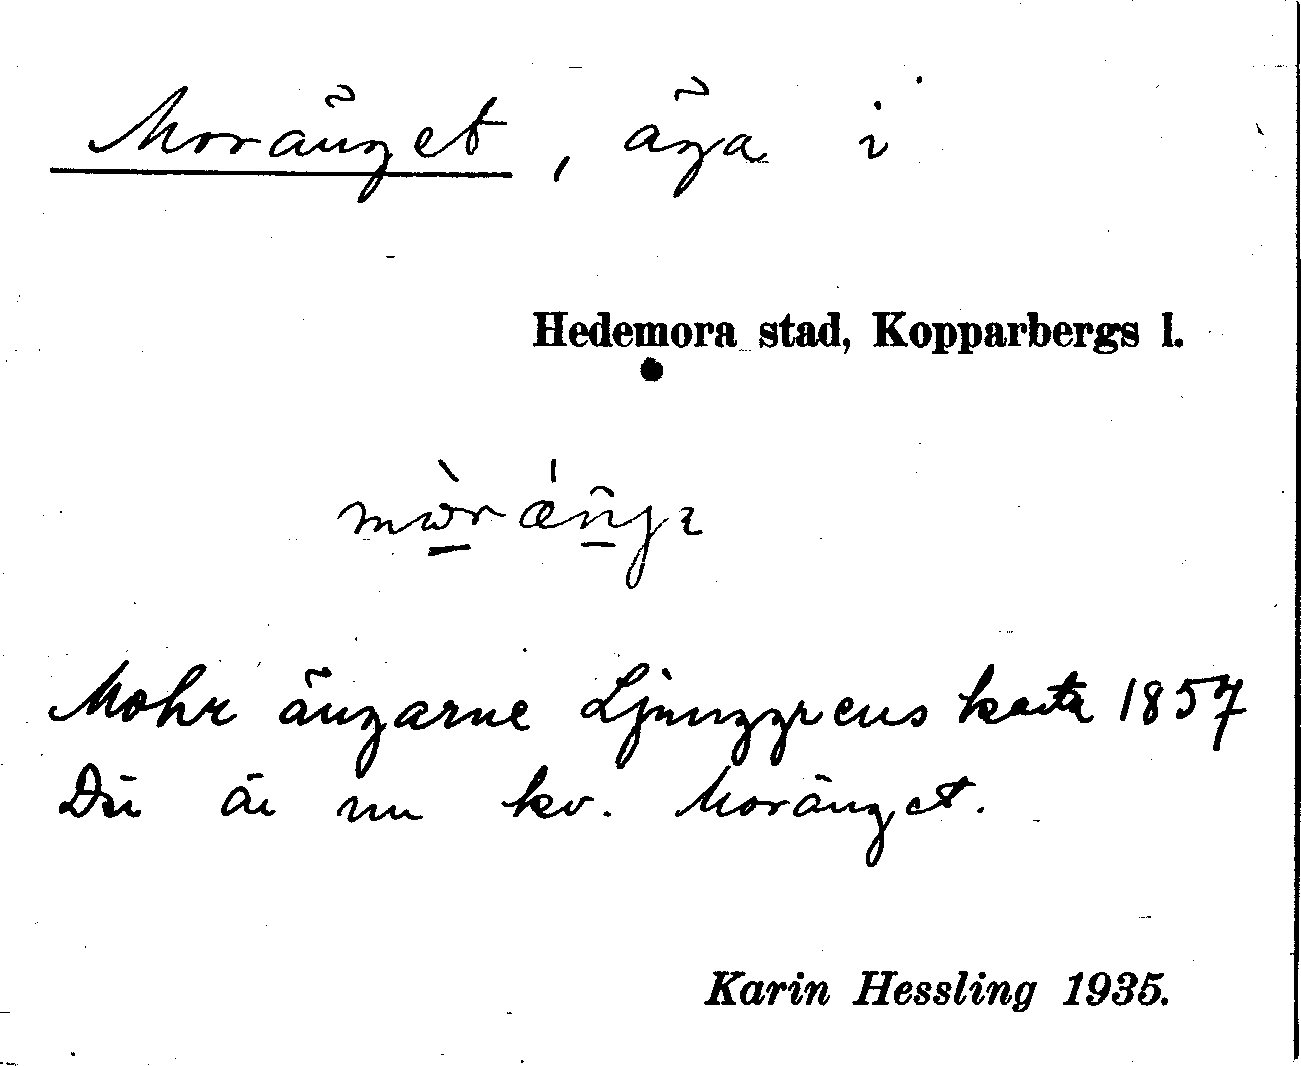 Moränget, äga i
Hedemora stad, Kopparbergs l.
mὼ̲rǽn̲̂jɩ
Mohr ängarne Ljunggrens karta 1857
Där är nu kv. Moränget.
Karin Hessling 1935.